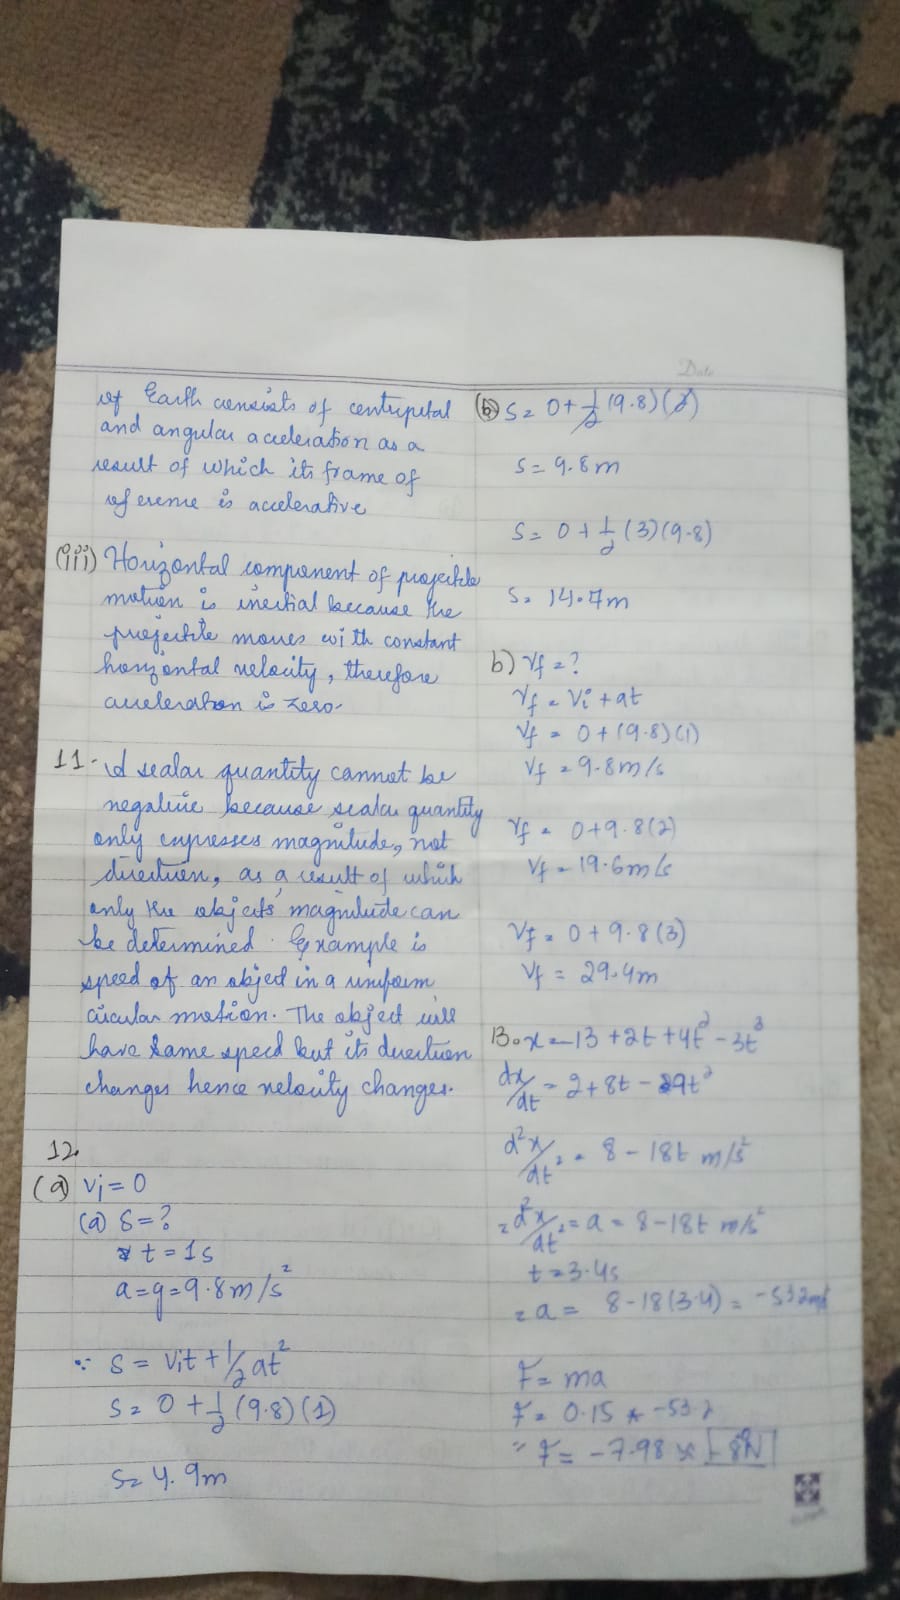 Date
of Earth consists of centripetal
and angular acceleration as a
result of which its frame of
reference is accelerative
(iii) Horizontal component of projectile
motion is inertial because the
projectile moves with constant
horizontal velocity, therefore
acceleration is zero.
11. A scalar quantity cannot be
negative because scalar quantity
only expresses magnitude, not
direction, as a result of which
only the objects' magnitude can
be determined. Example is
speed of an object in a uniform
circular motion. The object will
have same speed but its direction
changes hence velocity changes.
12.
(a) Vi = 0
(a) S = ?
t = 1s
a = g = 9.8 m/s²
∵ S = Vit + 1/2 at²
S = 0 + 1/2 (9.8)(1)
S = 4.9m
(b) S = 0 + 1/2 (9.8)(2)
S = 9.8m
S = 0 + 1/2 (3)(9.8)
S = 14.7m
b) Vf = ?
Vf = Vi + at
Vf = 0 + (9.8)(1)
Vf = 9.8m/s
Vf = 0 + 9.8(2)
Vf = 19.6m/s
Vf = 0 + 9.8(3)
Vf = 29.4m
13. x = 13 + 2t + 4t² - 3t³
dx/dt = 2 + 8t - 9t²
d²x/dt² = 8 - 18t m/s²
= d²x/dt² = a = 8 - 18t m/s²
t = 3.4s
= a = 8 - 18(3.4) = -53.2
F = ma
F = 0.15 * -53.2
∵ F = -7.98 ≈ -8N